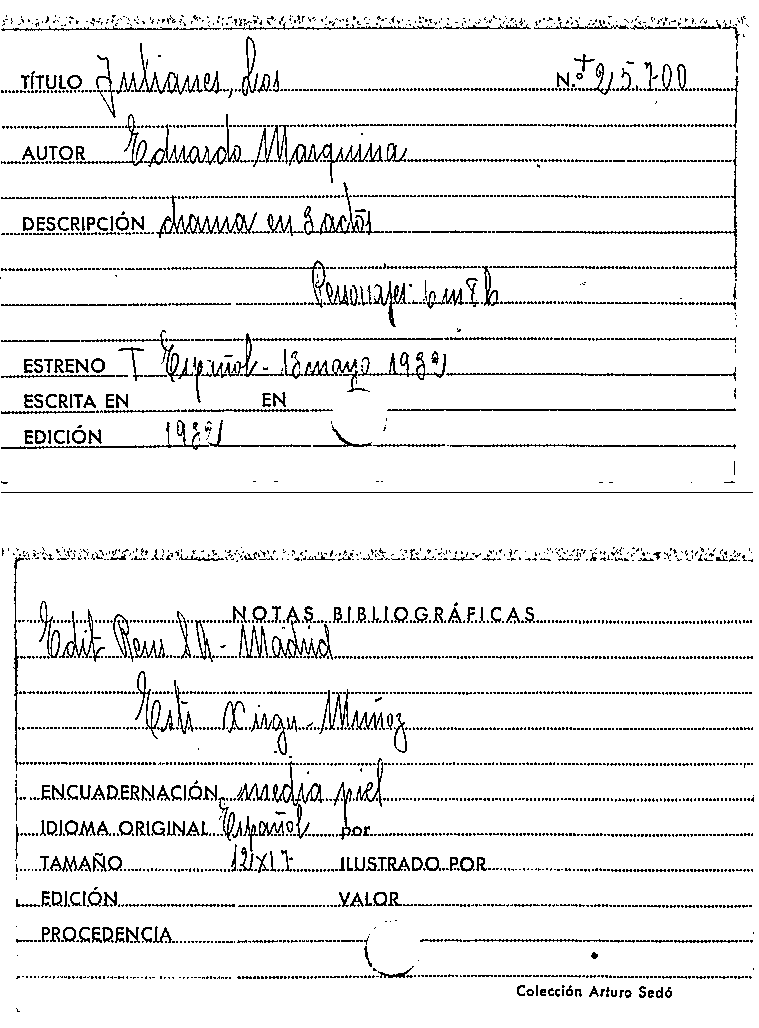 TÍTULO Julianes, Los N.º + 25.700
AUTOR Eduardo Marquina
DESCRIPCIÓN drama en 3 actos
Personajes: 6 m 8 h
ESTRENO T Español - 13 mayo 1932
ESCRITA EN EN
EDICIÓN 1932
NOTAS BIBLIOGRÁFICAS
Edit Reus S A - Madrid
Estr Xirgu - Muñoz
ENCUADERNACIÓN media piel
IDIOMA ORIGINAL Español por
TAMAÑO 12x17 ILUSTRADO POR
EDICIÓN VALOR
PROCEDENCIA
Colección Arturo Sedó